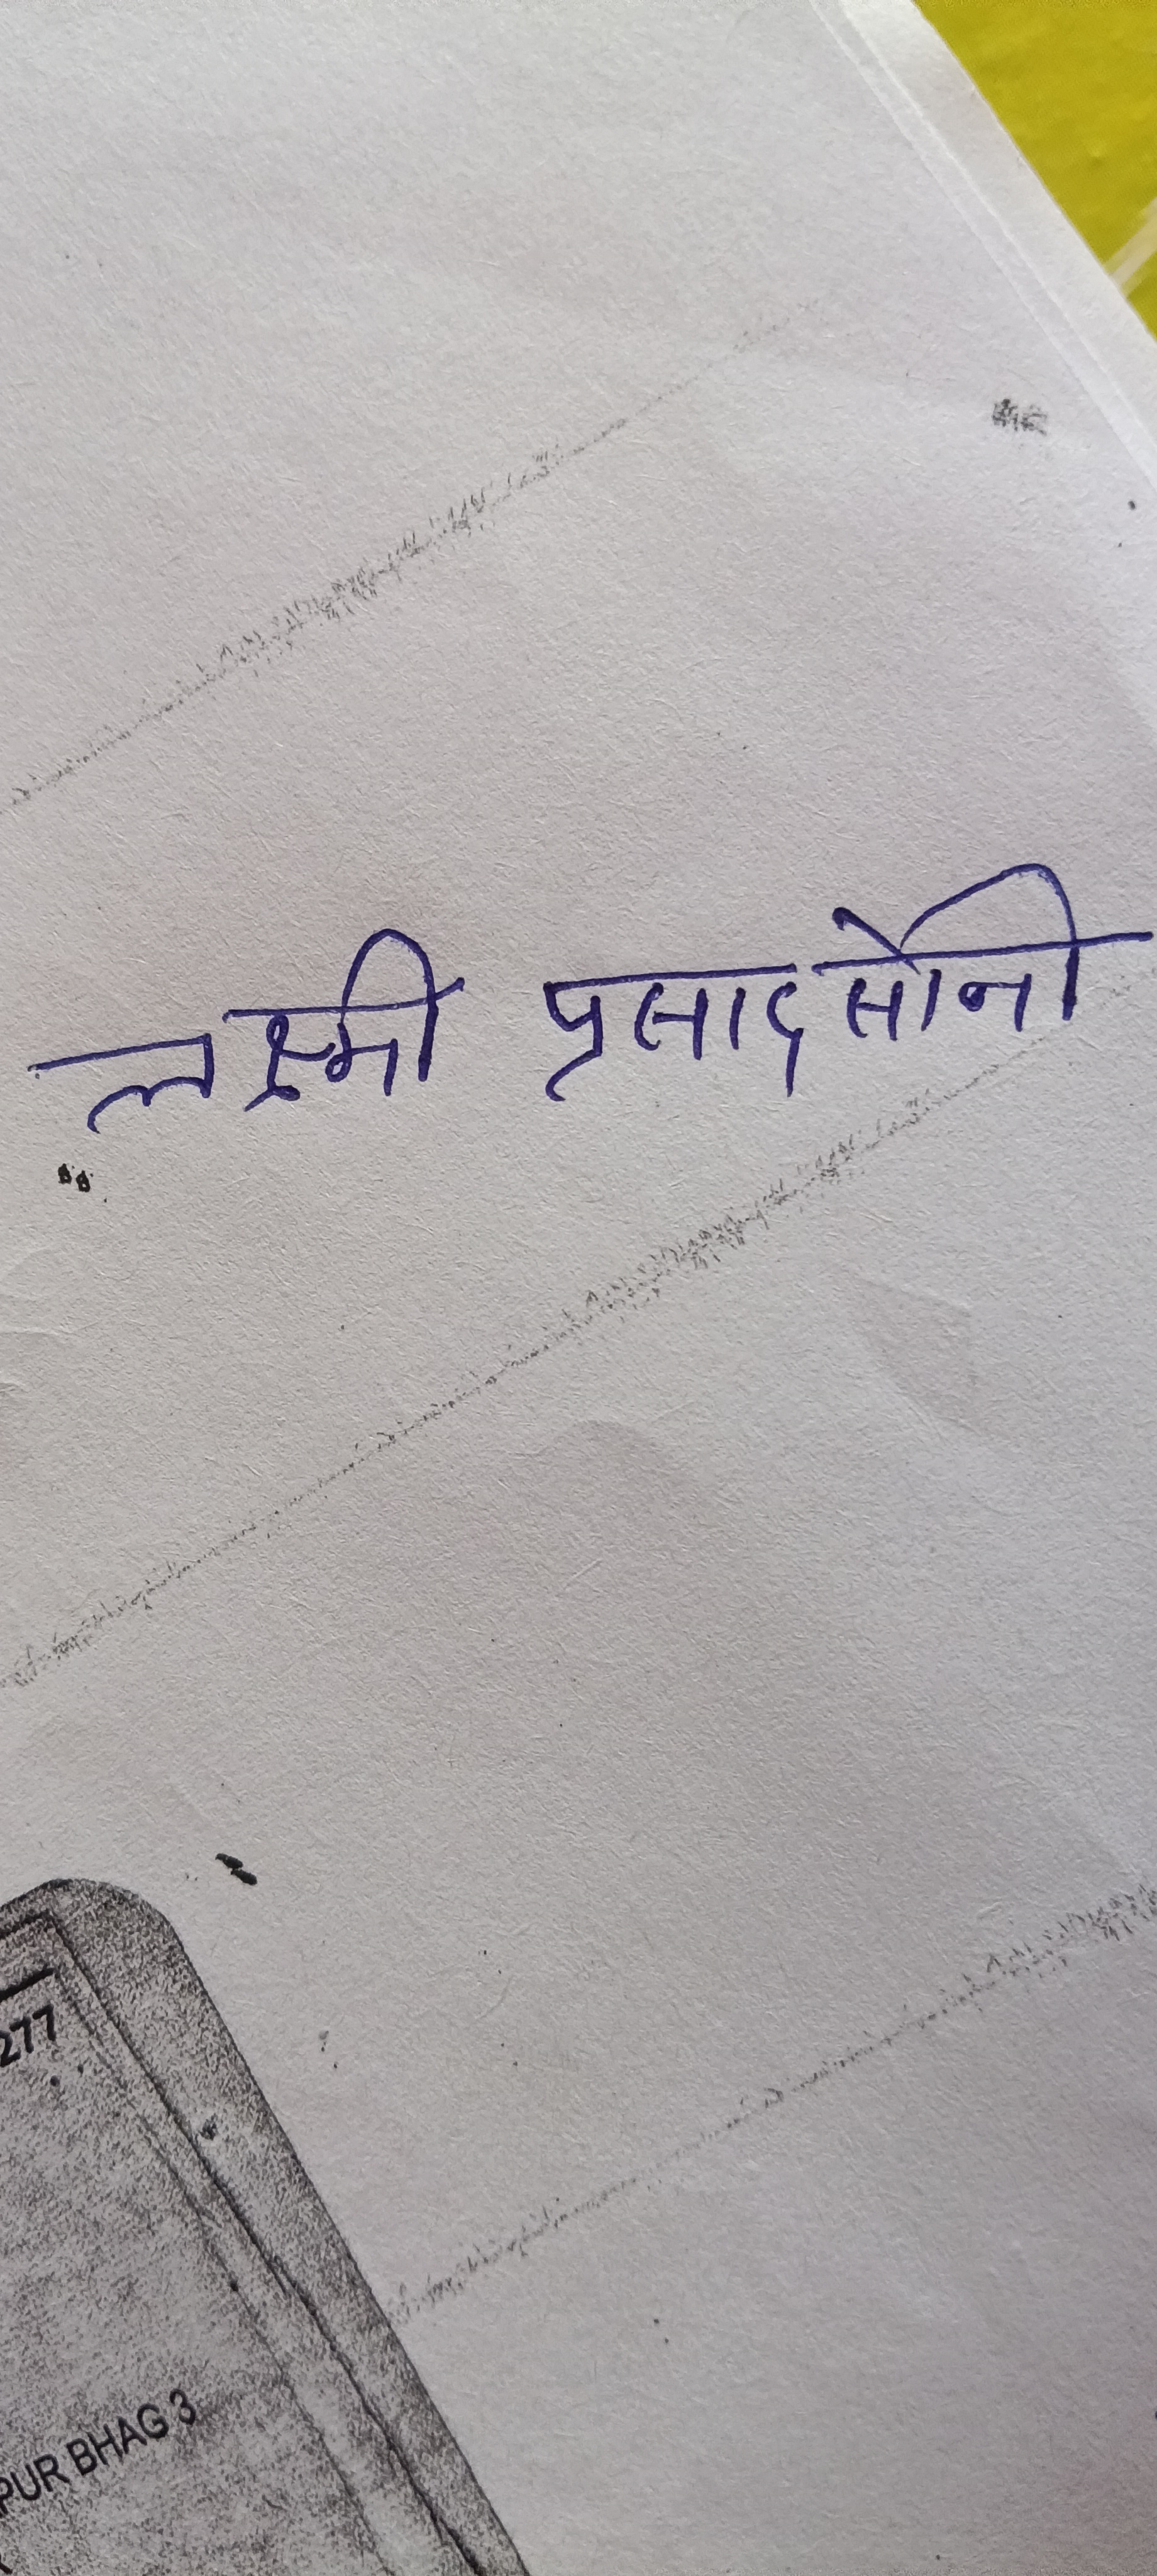 लक्ष्मी प्रसाद सोनी
277
PUR BHAG 3